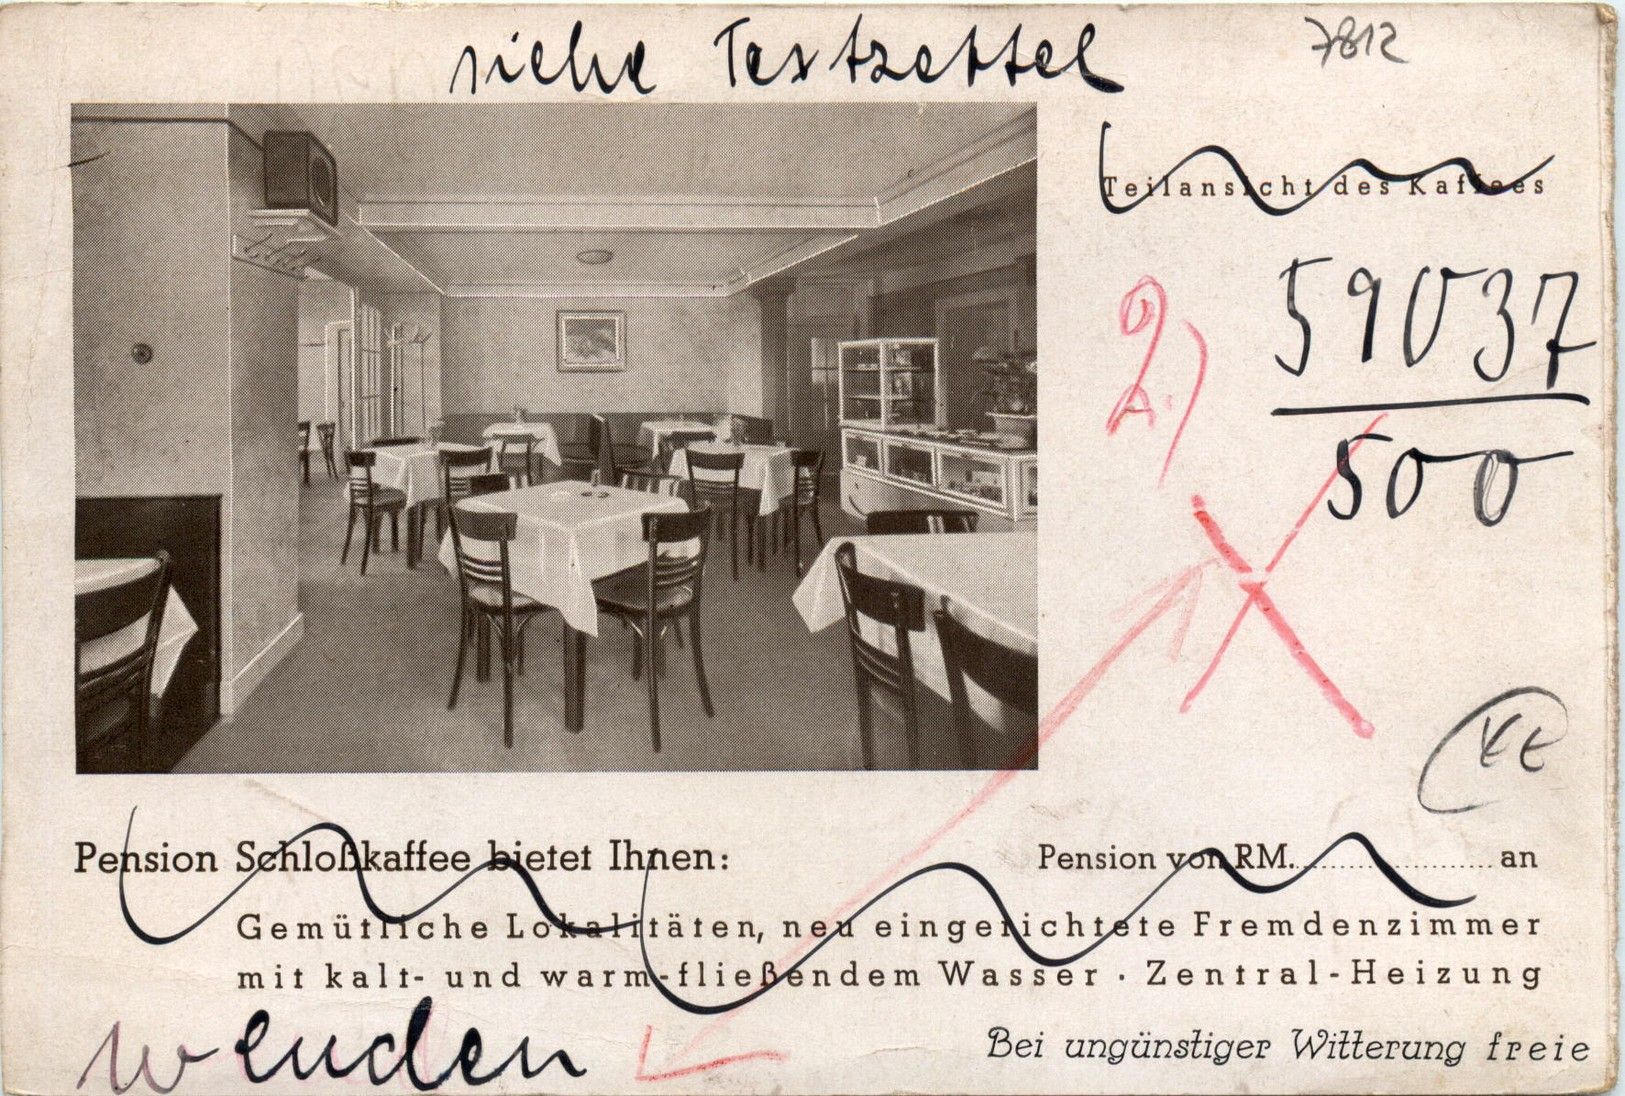 siehe Textzettel
7812
Teilansicht des Kaffees
59037
500
2.)
Pension Schloßkaffee bietet Ihnen:
Pension von RM. .................... an
Gemütliche Lokalitäten, neu eingerichtete Fremdenzimmer
mit kalt- und warm-fließendem Wasser · Zentral-Heizung
wenden
Bei ungünstiger Witterung freie